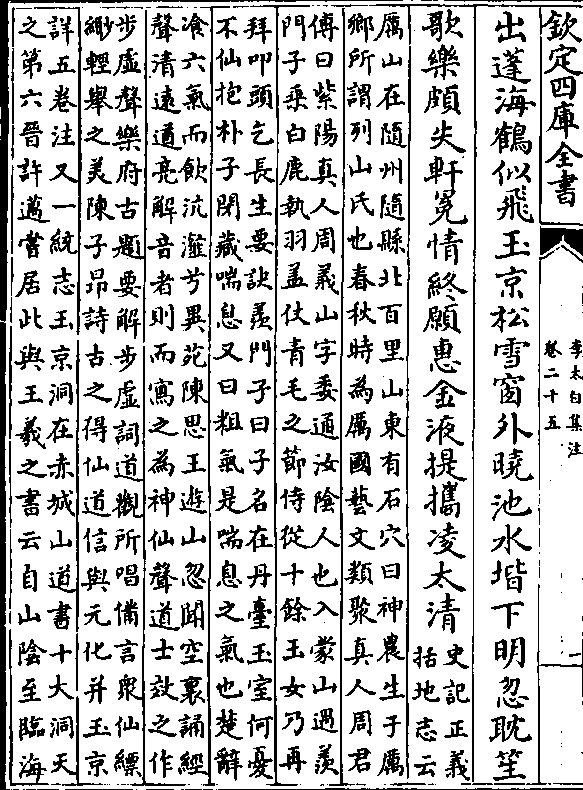 欽定四庫全書
李太白集注
卷二十五
一
出蓬海鶴似飛玉京松雪窗外曉池水堦下明忽耽笙
歌樂頗失軒冕情終願惠金液提攜凌太清
史記正義
括地志云
厲山在隨州隨縣北百里山東有石穴曰神農生于厲
鄉所謂列山氏也春秋時為厲國藝文類聚真人周君
傳曰紫陽真人周義山字委通汝陰人也入蒙山遇羨
門子乘白鹿執羽葢仗青毛之節侍從十餘玉女乃再
拜叩頭乞長生要訣羨門子曰子名在丹臺玉室何憂
不仙抱朴子閉藏喘息又曰粗氣是喘息之氣也楚辭
飡六氣而飲沆瀣兮異苑陳思王遊山忽聞空裏誦經
聲清遠遒亮解音者則而寫之為神仙聲道士效之作
步虛聲樂府古題要解步虛詞道觀所唱備言衆仙縹
緲輕舉之美陳子昂詩古之得仙道信與元化并玉京
詳五卷注又一統志玉京洞在赤城山道書十大洞天
之第六晉許邁嘗居此與王羲之書云自山陰至臨海